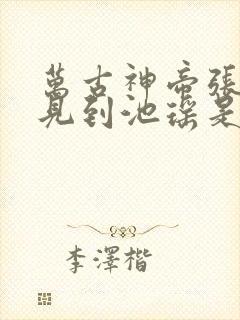 萬古神帝張
見到池瑤是
李澤楷